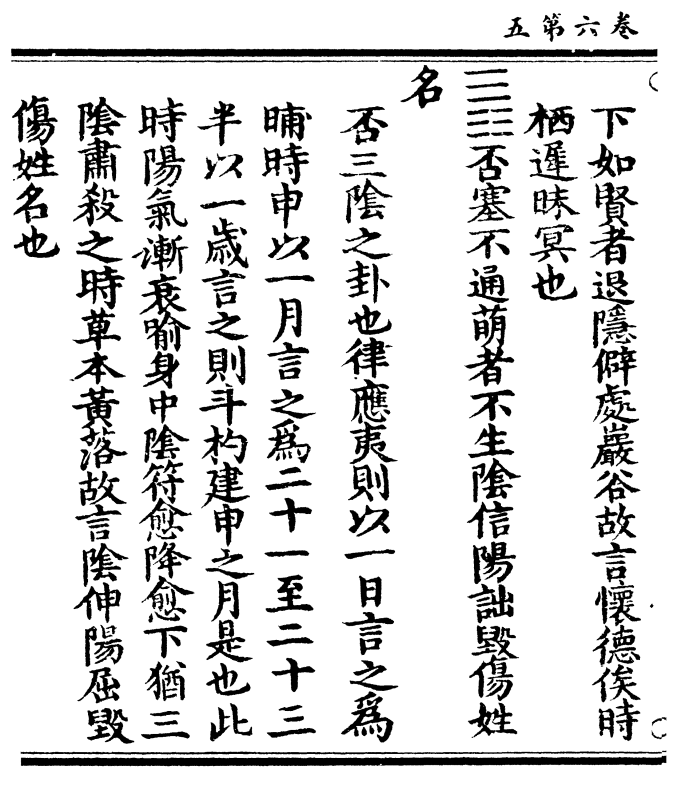 卷六第五
下如賢者退隱僻處巖谷故言懷德俟時
栖遲昧冥也
䷋否塞不通萌者不生陰信陽詘毀傷姓
名
否三陰之卦也律應夷則以一日言之為
晡時申以一月言之為二十一至二十三
半以一歲言之則斗杓建申之月是也此
時陽氣漸衰喻身中陰符愈降愈下猶三
陰肅殺之時草本黃落故言陰伸陽屈毀
傷姓名也